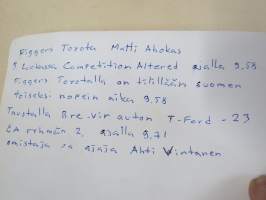 Riggers Toyota Matti Ahokas
Luokassa Competition Altered ajalla 9,58
Riggers Toyotalla on tithllzän Suomen
nopein aika 9.58
Taustalla Bre-Vir auton T-Ford -23
EA ryhmän 2, ajalla 9,71
omistaja ja ajaja Ahti Vintanen.